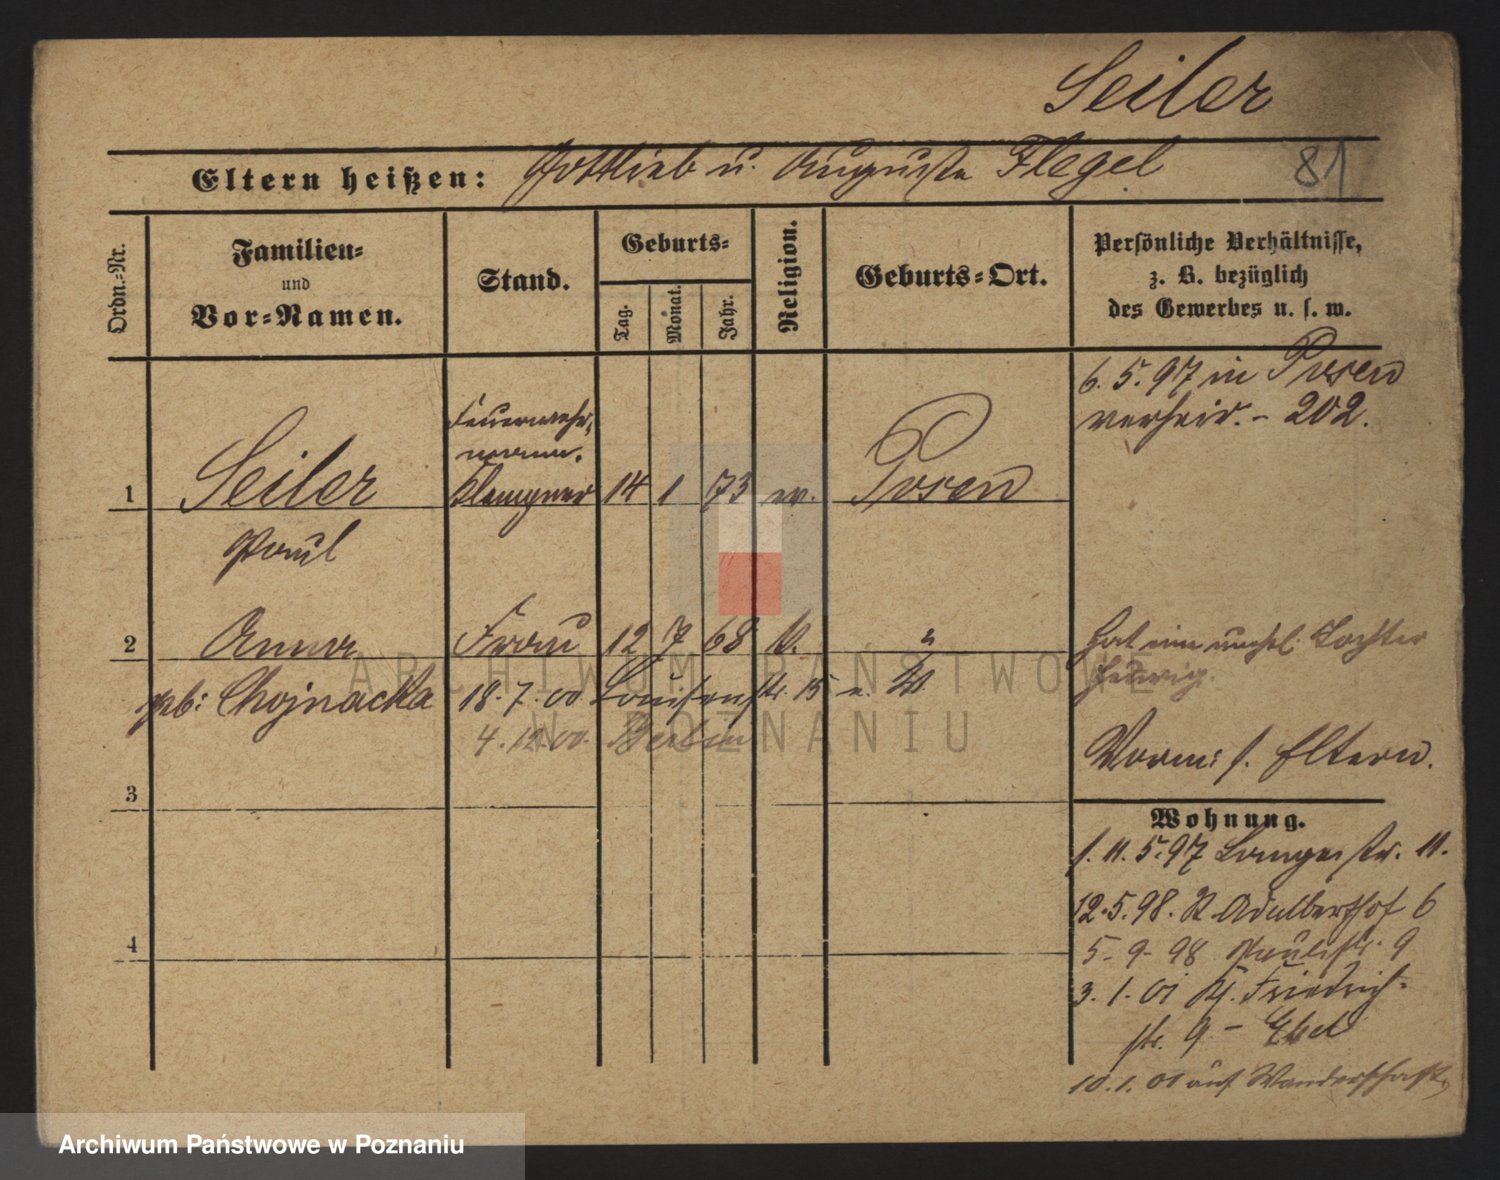 Seiler
Eltern heißen: Gottlieb u. Auguste Flegel
81
Ordn.-Nr.
Familien-
und
Vor-Namen.
Stand.
Geburts-
Tag.
Monat.
Jahr.
Religion.
Geburts-Ort.
Persönliche Verhältnisse,
z. B. bezüglich
des Gewerbes u. s. w.
6. 5. 97 in Posen
verheir. - 202.
Feuerwehr-
mann.
1 Seiler Klempner 14 1 73 ev. Posen
Paul
2 Anna Frau 12 7 68 k. "
hat eine unehl. Tochter
Hedwig.
geb: Chojnacka 18. 7. 00 Louisenstr. 15 n. W.
4. 12. 00. Berlin
Vorm: s. Eltern.
3
Wohnung.
s. 11. 5. 97 Langestr. 11.
12. 5. 98. St. Adalberthof 6
4
5. 9. 98 Paulistr. 9
3. 1. 01 Friedrich-
str. 9 -
10. 1. 01 auf Wanderschaft
ARCHIWUM PAŃSTWOWE
W POZNANIU
Archiwum Państwowe w Poznaniu